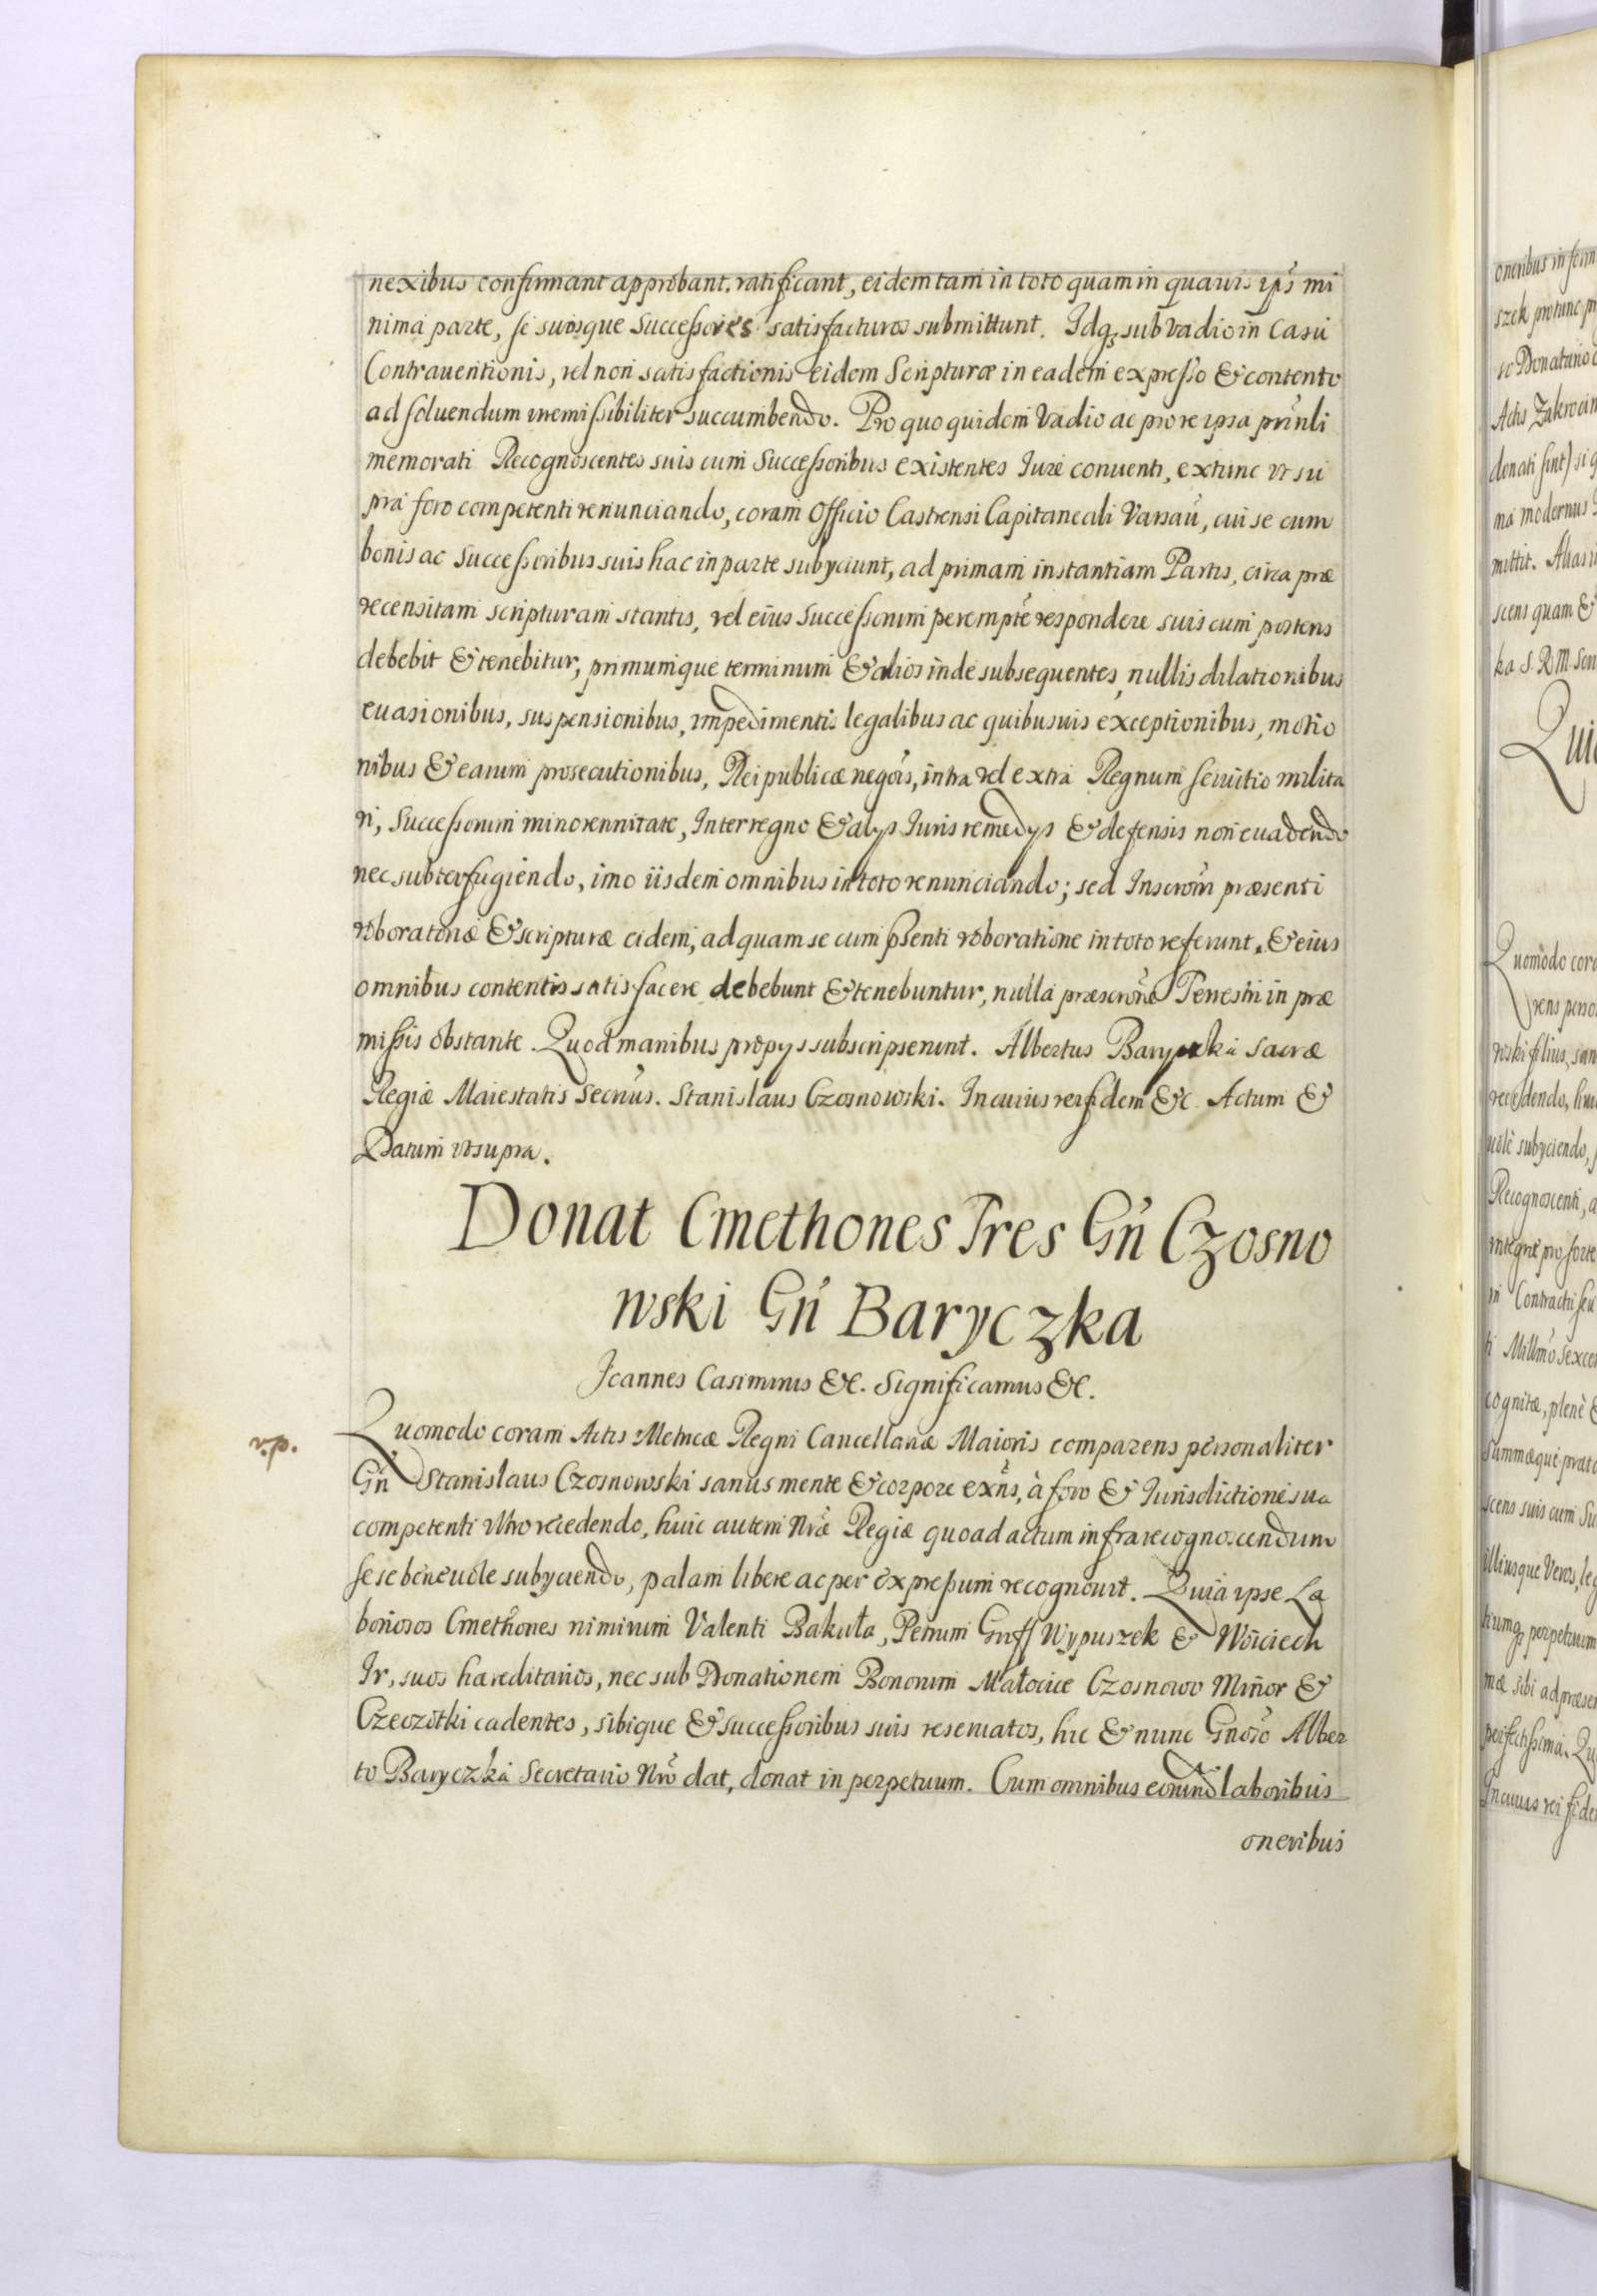 nexibus confirmant approbant. ratificant, eidem tam in toto quam in quauis ips mi
nima parte, se suosque Successores satisfacturos submittunt. Idq; sub vadio in Casu
Contrauentionis, vel non satisfactionis eidem Scripturæ in eadem expresso & contento
ad soluendum irremissibiliter succumbendo. Pro quo quidem Vadio ac pro re ipsa prinli
memorati Recognoscentes suis cum Successoribus existentes Iure conuenti, extunc vt su
pra foro competenti renunciando, coram Officio Castrensi Capitaneali Varsau, cui se cum
bonis ac Successoribus suis hac in parte subyciunt, ad primam instantiam Partis, circa præ
recensitam scripturam stantis, vel eius Successorum perempte respondere suis cum posteris
debebit & tenebitur, primumque terminum & alios inde subsequentes nullis dilationibus
euasionibus, suspensionibus, impedimentis legalibus ac quibusuis exceptionibus, motio
nibus & earum prosecutionibus, Rei publicæ negõis, intra vel extra Regnum seruitio milita
ri, Successorum minorennitate, Interregno & alys Iuris remedys & defensis non euadendo
nec subterfugiendo, imo iisdem omnibus in toto renunciando; sed Inscrõm præsenti
roboratoriæ & scripturæ eidem, ad quam se cum psenti roboratione in toto referunt. & eius
omnibus contentis satisfacere debebunt & tenebuntur, nulla præscrõne Terrestri in præ
missis obstante. Quod manibus propys subscripserunt. Albertus Baryczka Sacræ
Regiæ Maiestatis Secrius. Stanislaus Czosnowski. In cuius rei fidem &c. Actum &
Datum vt supra.
Donat Cmethones Tres Gñ Czosno
wski Gñ Baryczka
Ioannes Casimirus &c. Significamus &c.
Quomodo coram Actis Metricæ Regni Cancellariæ Maioris comparens personaliter
Gñ Stanislaus Czosnowski sanus mente & corpore exñs, à foro & Iurisdictione sua
competenti vltro recedendo, huic autem Nræ Regiæ quoad actum infra recognoscendum
sese beneuole subyciendo, palam libere ac per expressum recognouit. Quia ipse La
boriosos Cmethones nimirum Valenti Bakuła, Petrum Gryff Wypuszek & Woiciech
Ir, suos hæreditarios, nec sub Donationem Bonorum Małocice Czosnowo Minor &
Czeczotki cadentes, sibique & successoribus suis reseruatos, hic & nunc Gnoso Alber
to Baryczka Secretario Nro dat, donat in perpetuum. Cum omnibus eorund laboribus
oneribus